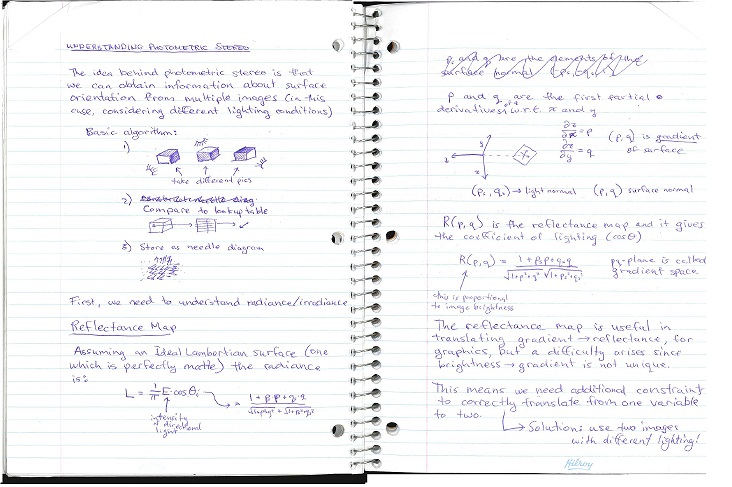 UNDERSTANDING PHOTOMETRIC STEREO
The idea behind photometric stereo is that
we can obtain information about surface
orientation from multiple images (in this
case, considering different lighting conditions)
Basic algorithm:
1)
take different pics
2)
Compare to lookup table
3) Store as needle diagram
First, we need to understand radiance/irradiance
Reflectance Map
Assuming an Ideal Lambertian Surface (one
which is perfectly matte) the radiance
is:
L = 1/π E cos θi
= 1 + psp + qsq
intensity
of directional
light
p and q are the elements of the
surface normal
p and q are the first partial
derivatives of z w.r.t. x and y
∂z/∂x = p
(p,q) is gradient
∂z/∂y = q
of surface
y
z
x
(ps, qs) → light normal (p,q) surface normal
R(p,q) is the reflectance map and it gives
the coefficient of lighting (cosθ)
R(p,q) = 1 + psp + qsq / √1+p²+q² √1+ps²+qs²
pq-plane is called
gradient space
this is proportional
to image brightness
The reflectance map is useful in
translating gradient → reflectance, for
graphics, but a difficulty arises since
brightness → gradient is not unique.
This means we need additional constraint
to correctly translate from one variable
to two.
↳ Solution: use two images
with different lighting!
Hilroy